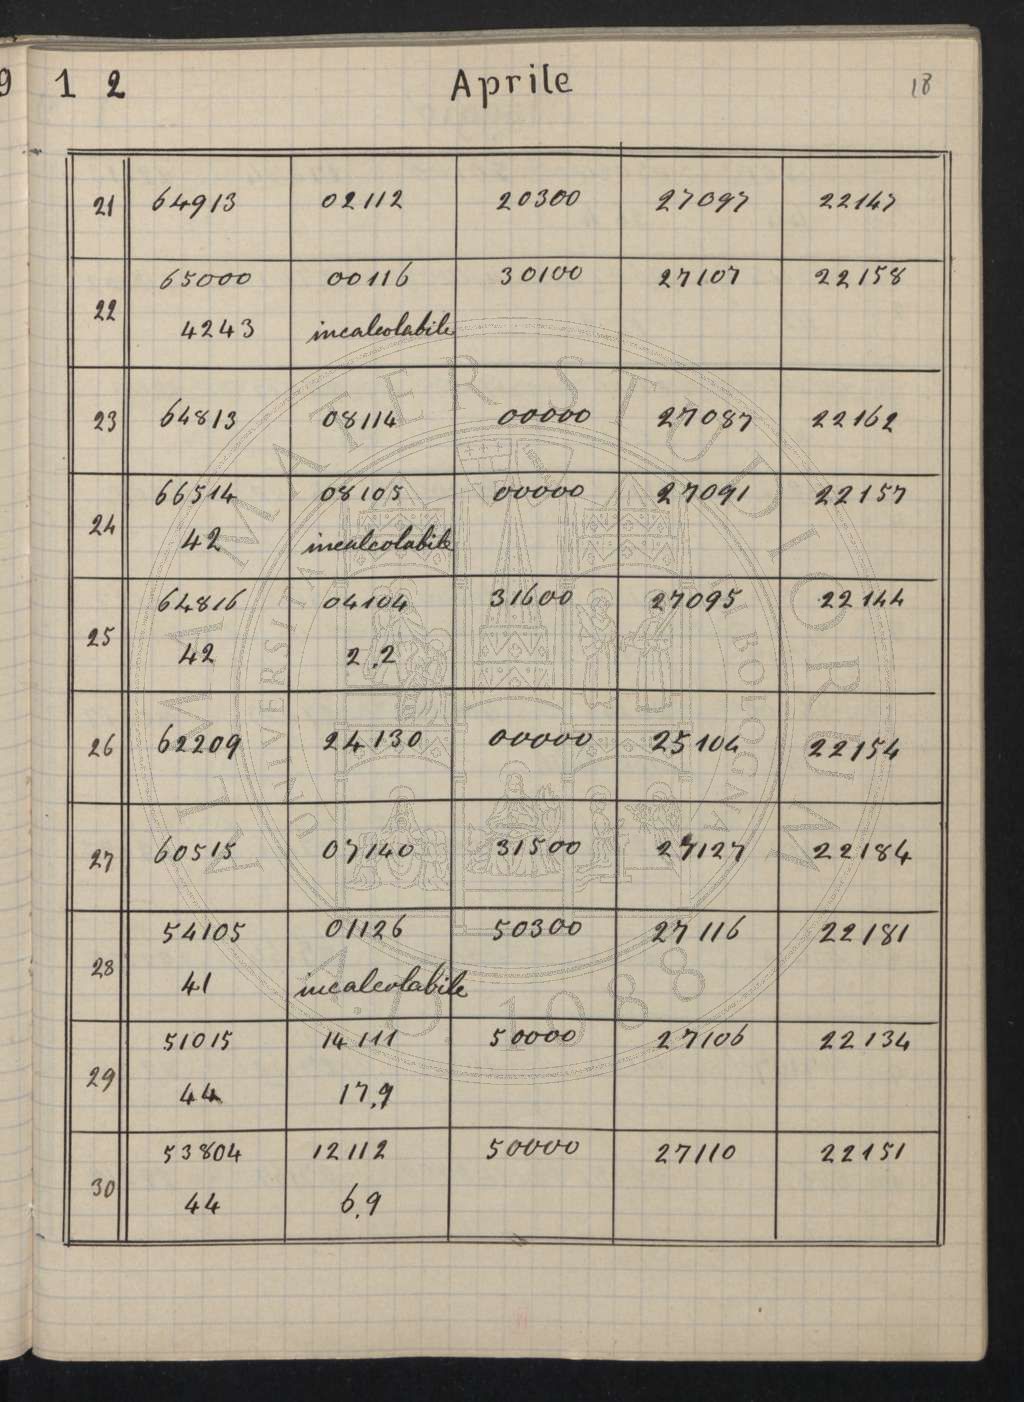 9 1 2 Aprile 18
21 64913 02112 20300 27097 22147
22 65000 00116 30100 27107 22158
4243 incalcolabile
23 64813 08114 00000 27087 22162
24 66514 08105 00000 27091 22157
42 incalcolabile
25 64816 04104 31600 27095 22144
42 2,2
26 62209 24130 00000 25104 22154
27 60515 07140 31500 27127 22184
28 54105 01126 50300 27116 22181
41 incalcolabile
29 51015 14111 50000 27106 22134
44 17,9
30 53804 12112 50000 27110 22151
44 6,9
ALMA MATER STUDIORUM
UNIVERSITÀ DI BOLOGNA
A.D. 1088